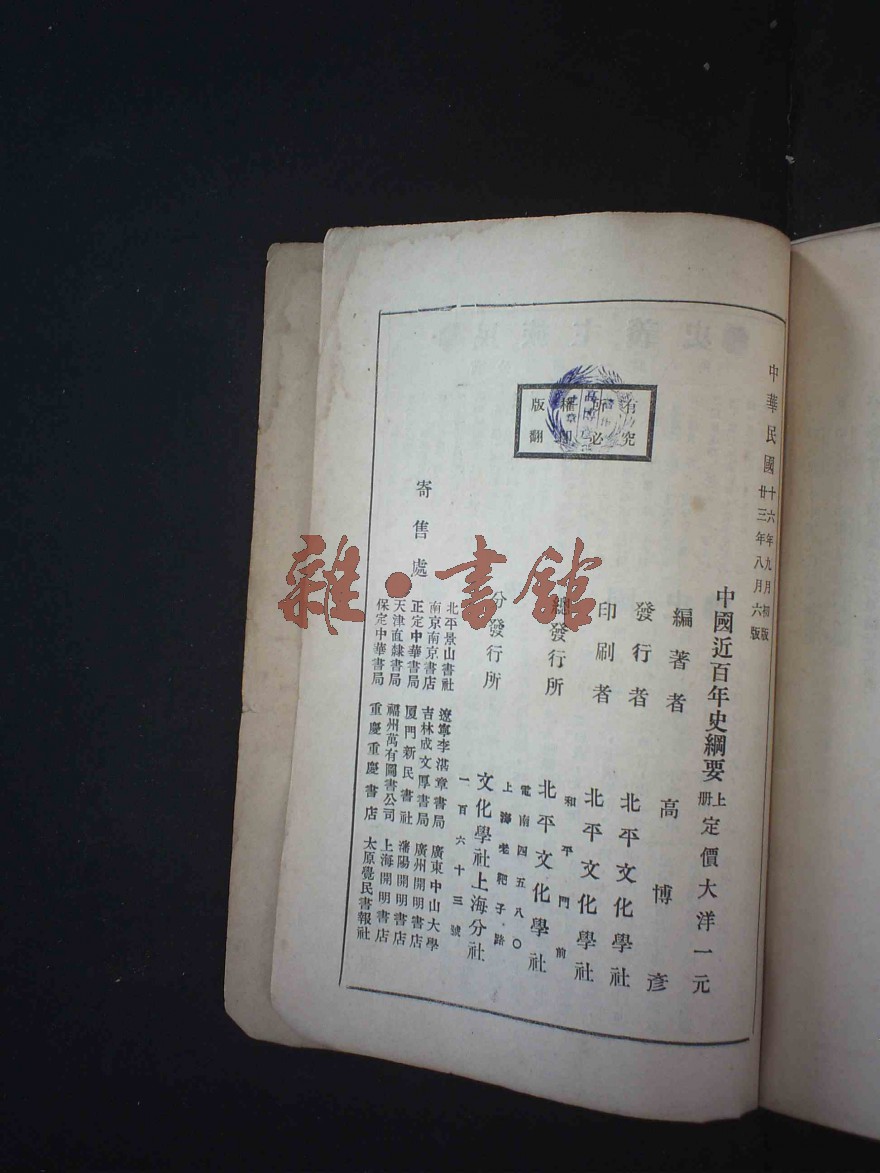 中華民國十六年九月初版
廿三年八月六版
中國近百年史綱要上册定價大洋一元
編著者 高博彥
發行者 北平文化學社
印刷者 北平文化學社
和平門前
總發行所 北平文化學社
電南四五八〇
上海老靶子路
分發行所 文化學社上海分社
一百六十三號
寄售處
北平景山書社 遼寧李湛章書局 廣東中山大學
南京南京書店 吉林成文厚書局 廣州開明書店
正定中華書局 厦門新民書社 瀋陽開明書店
天津直隸書局 福州萬有圖書公司 上海開明書店
保定中華書局 重慶重慶書店 太原覺民書報社
版權所有
翻印必究
雜·書館